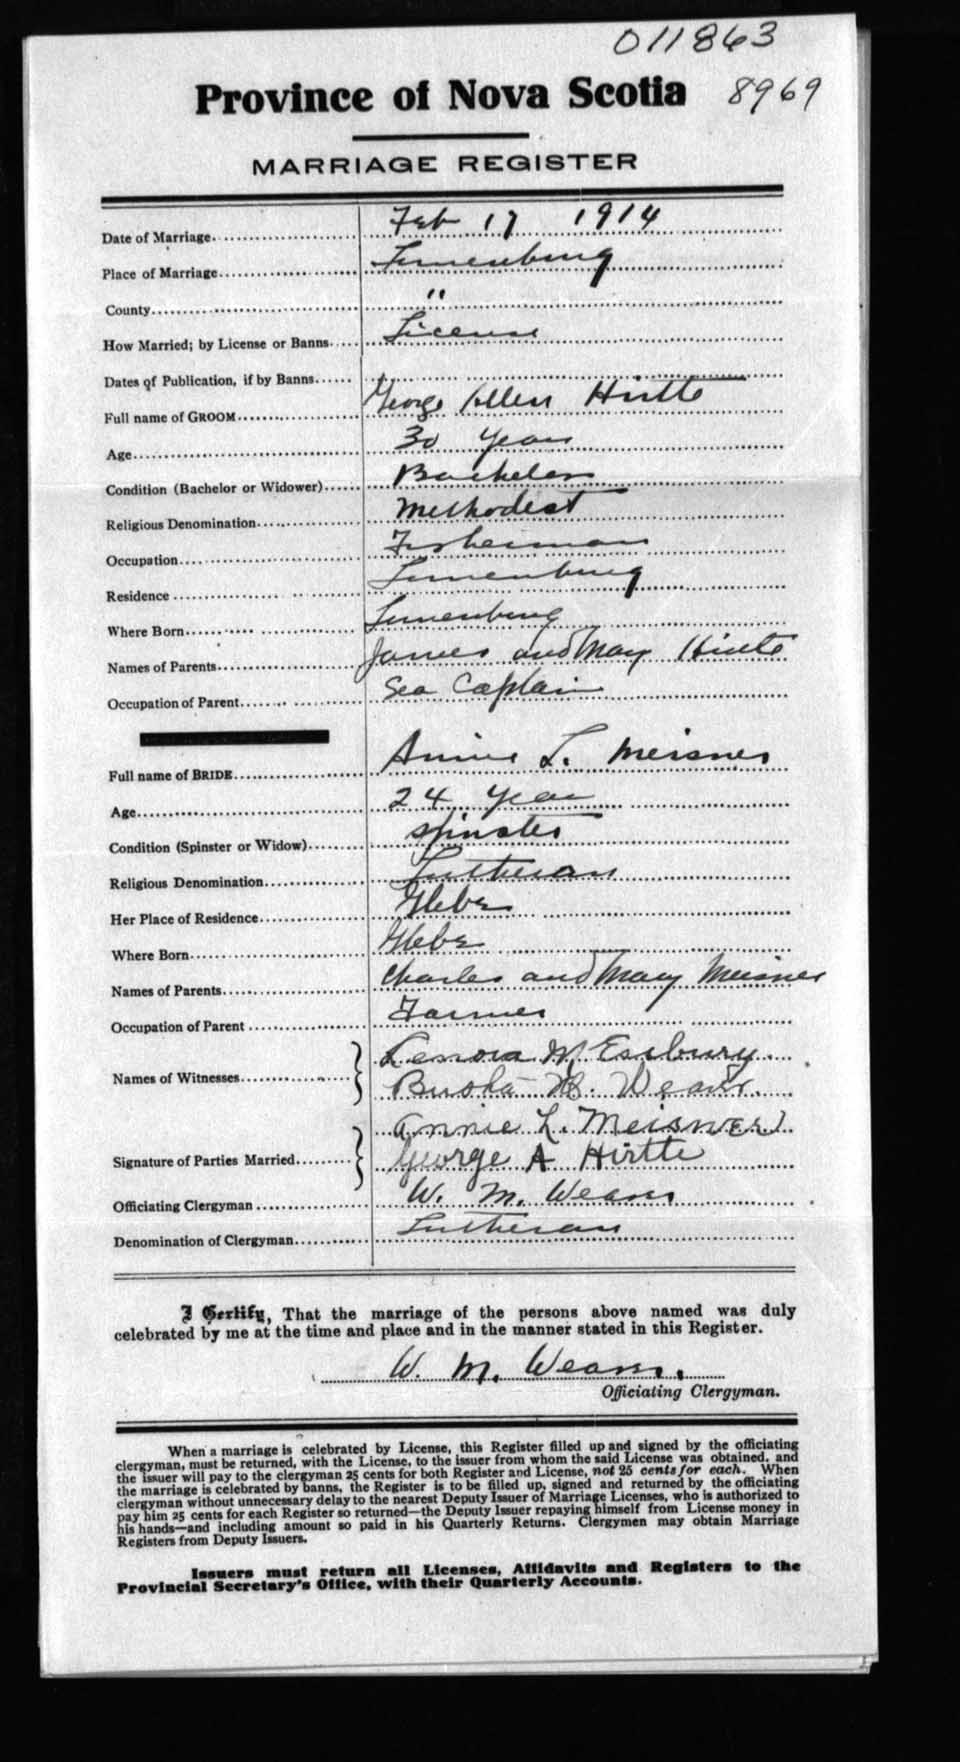 011863
Province of Nova Scotia 8969
MARRIAGE REGISTER
Date of Marriage Feb 17 1914
Place of Marriage Lunenburg
County "
How Married; by License or Banns License
Dates of Publication, if by Banns
Full name of GROOM George Allen Hirtle
Age 30 years
Condition (Bachelor or Widower) Bachelor
Religious Denomination Methodist
Occupation Fisherman
Residence Lunenburg
Where Born Lunenburg
Names of Parents James and May Hirtle
Occupation of Parent Sea Captain
Full name of BRIDE Annie L. Meisner
Age 24 years
Condition (Spinster or Widow) Spinster
Religious Denomination Lutheran
Her Place of Residence Glebe
Where Born Glebe
Names of Parents Charles and Mary Meisner
Occupation of Parent Farmer
Names of Witnesses Lenora M.
H. Weaver
Annie L. Meisner
Signature of Parties Married George A Hirtle
Officiating Clergyman W. M. Weaver
Denomination of Clergyman Lutheran
I Certify, That the marriage of the persons above named was duly
celebrated by me at the time and place and in the manner stated in this Register.
W. M. Weaver.
Officiating Clergyman.
When a marriage is celebrated by License, this Register filled up and signed by the officiating
clergyman, must be returned, with the License, to the issuer from whom the said License was obtained, and
the issuer will pay to the clergyman 25 cents for both Register and License, not 25 cents for each. When
the marriage is celebrated by banns, the Register is to be filled up, signed and returned by the officiating
clergyman without unnecessary delay to the nearest Deputy Issuer of Marriage Licenses, who is authorized to
pay him 25 cents for each Register so returned—the Deputy Issuer repaying himself from License money in
his hands—and including amount so paid in his Quarterly Returns. Clergymen may obtain Marriage
Registers from Deputy Issuers.
Issuers must return all Licenses, Affidavits and Registers to the
Provincial Secretary's Office, with their Quarterly Accounts.